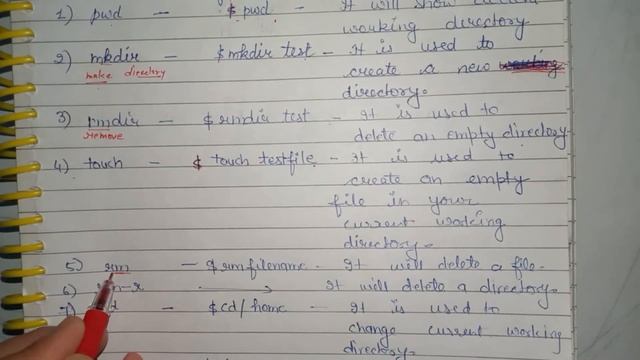 1) pwd - $ pwd - It will show current
working directory
2) mkdir - $ mkdir test - It is used to
make directory create a new working
directory.
3) rmdir - $ rmdir test - It is used to
remove delete an empty directory
4) touch - $ touch testfile - It is used to
create an empty
file in your
current working
directory.
5) rm - $ rm filename - It will delete a file.
6) rm-r → It will delete a directory.
7) cd - $ cd/home - It is used to
change current working
directory.